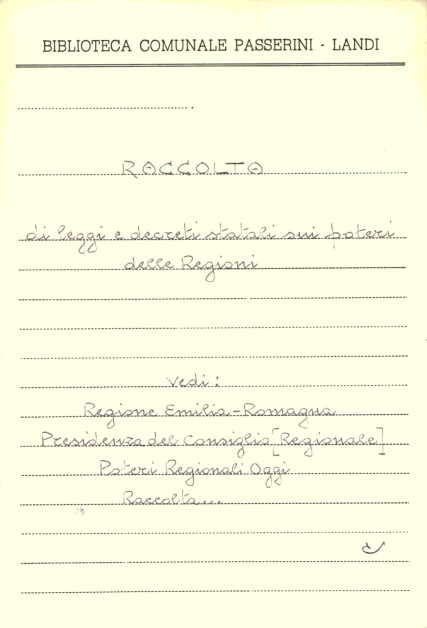 BIBLIOTECA COMUNALE PASSERINI - LANDI
RACCOLTA
di leggi e decreti statali sui poteri
delle Regioni
Vedi:
Regione Emilia-Romagna
Presidenza del Consiglio [Regionale]
Poteri Regionali Oggi
Raccolta...